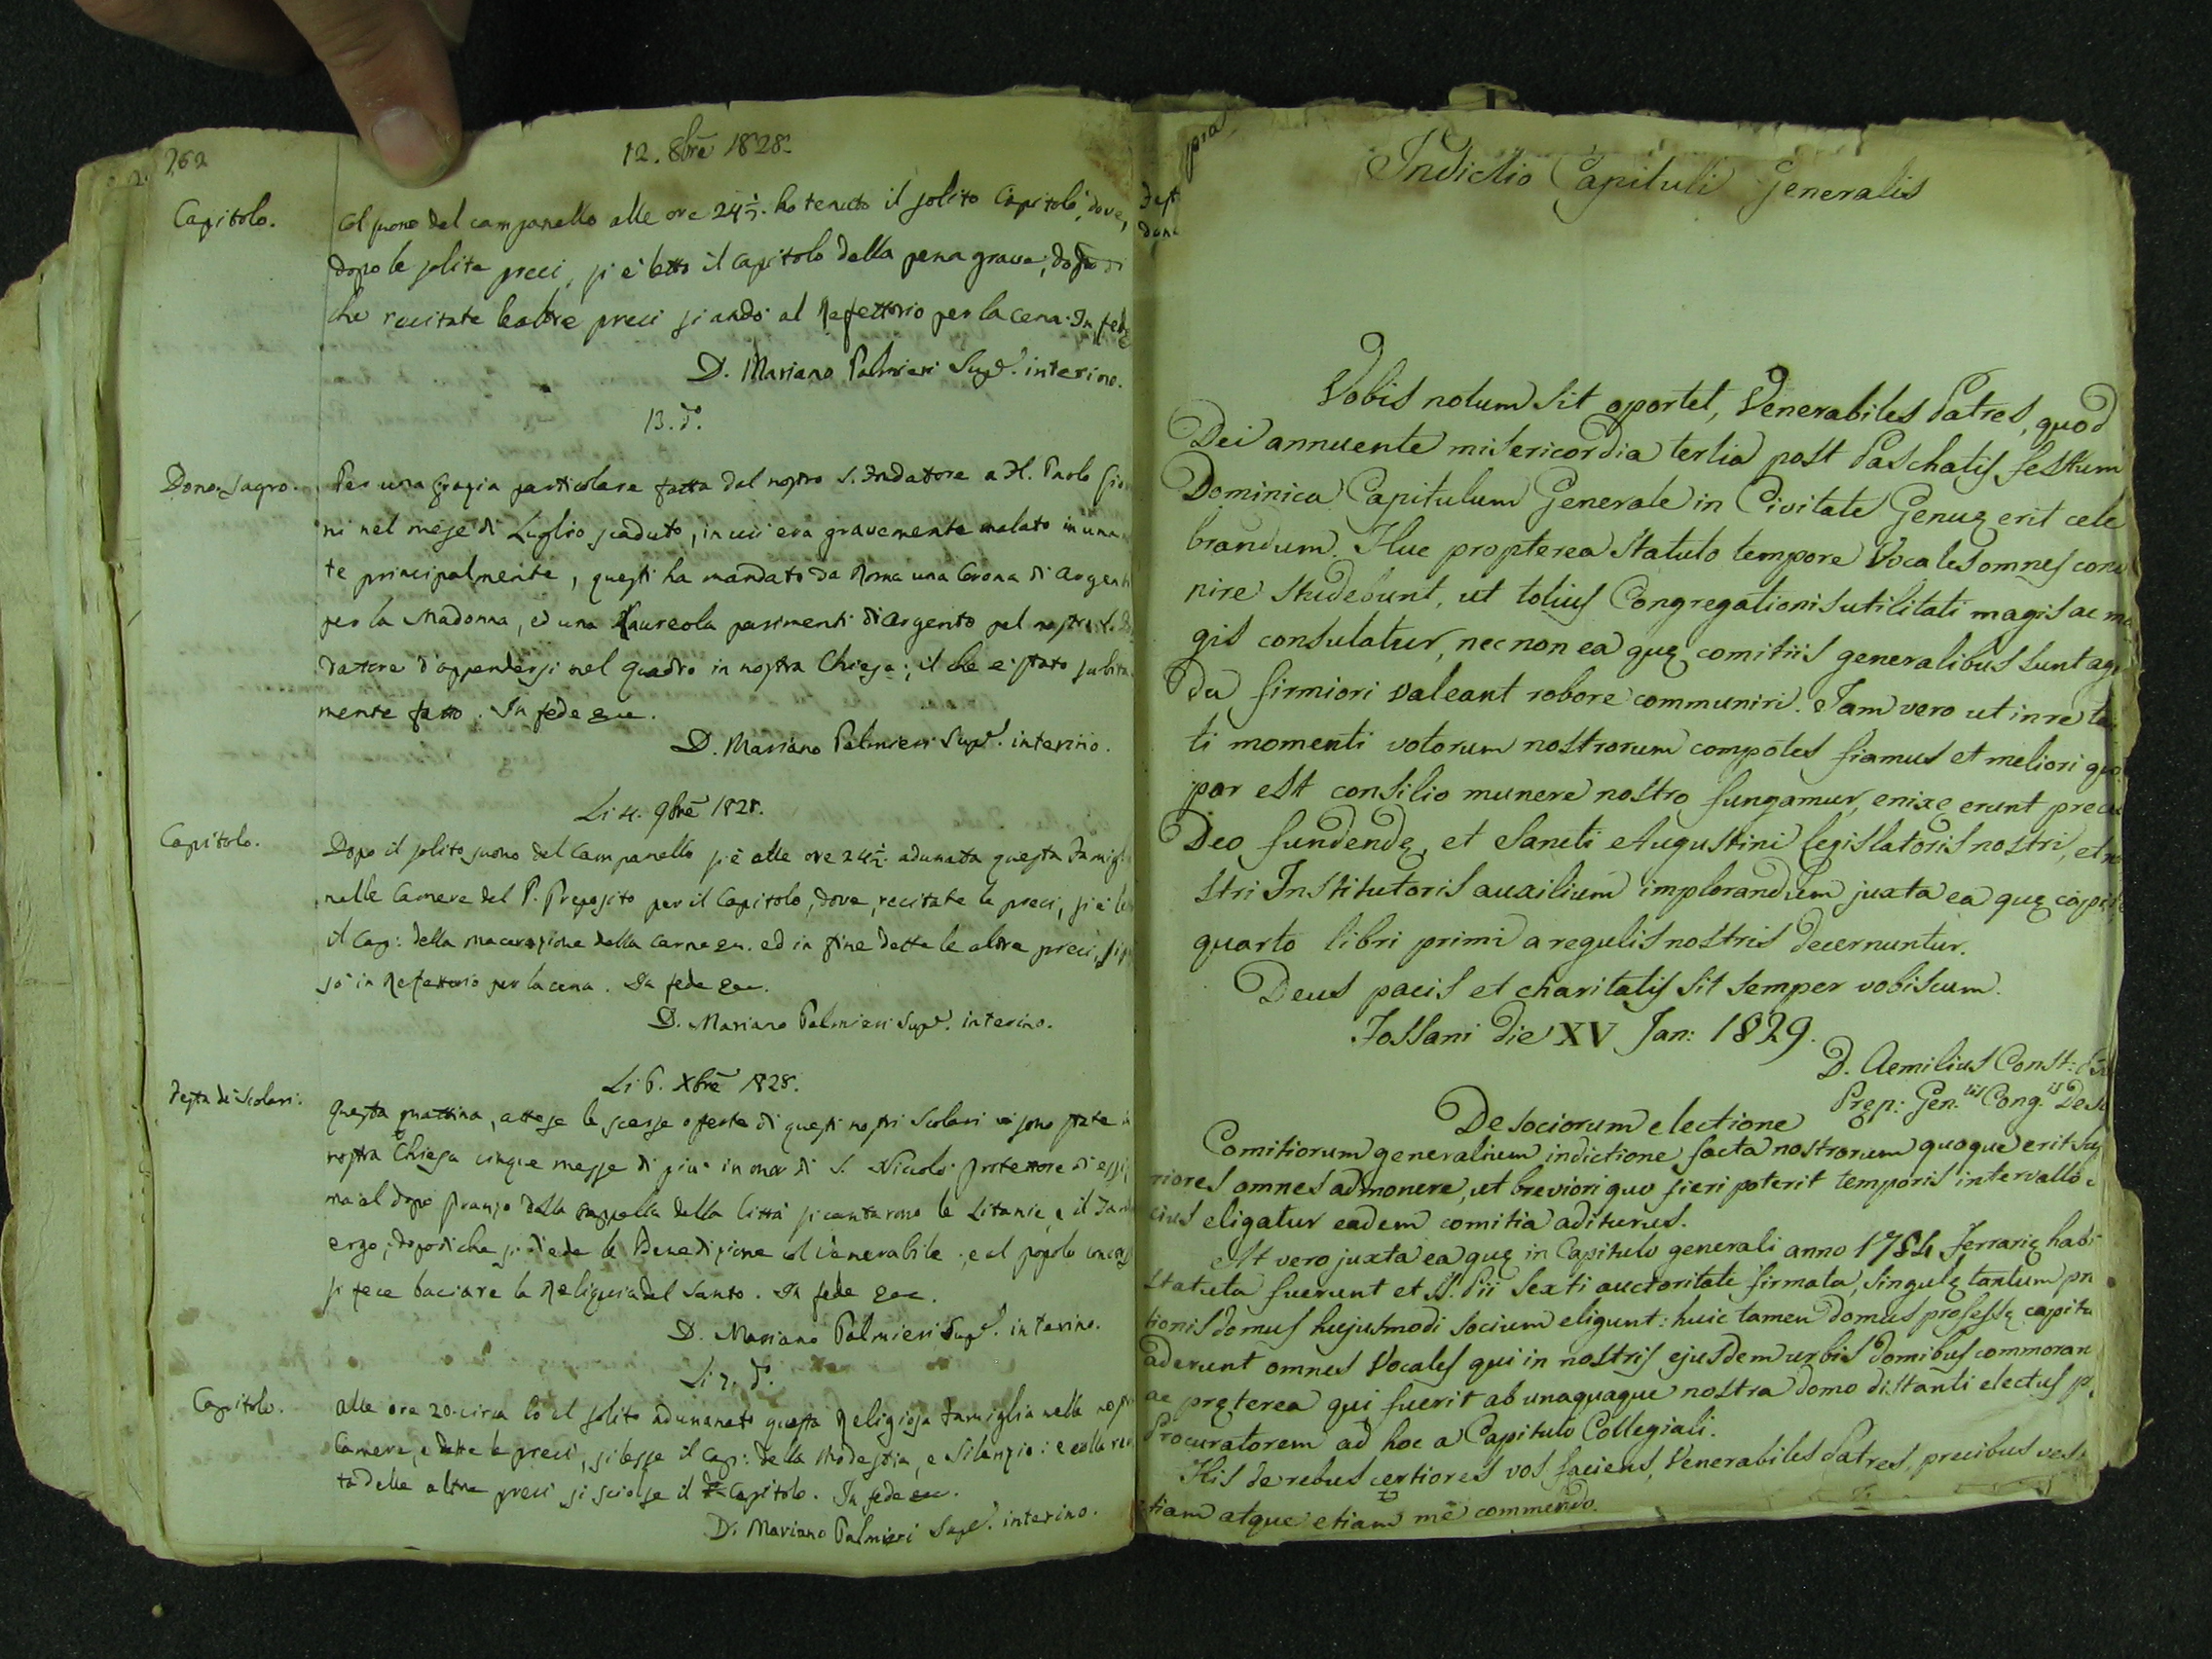 262
12. 8bre 1828.
Capitolo.
Col suono del campanello alle ore 24 1/2. ho tenuto il solito Capitolo, dove,
dopo le solite preci, si è letto il Capitolo della pena grave; dopo di
che recitate le altre preci si andò al Refettorio per la cena. In fede
D. Mariano Palmieri Supe. interino.
13. do.
Dono sagro.
Per una grazia particolare fatta dal nostro S. Fndatore a Fl. Paolo
ni nel mese di Luglio scaduto, in cui era gravemente malato in una
te principalmente, questi ha mandato da Roma una Corona di argent
per la Madonna, ed una Laureola parimenti di argento pel nostro
datore d'appendersi nel quadro in nostra Chiesa; il che è stato subita
mente fatto. In fede
D. Mariano Palmieri Supe. interino.
Li 4. 9bre 1828.
Capitolo.
Dopo il solito suono del Campanello si è alle ore 24 1/2. adunata questa Famigl
nelle Camere del P. Preposito per il Capitolo, dove, recitate le preci, si è le
il Cap: della macerazione della Carne ed in fine dette le altre preci,
sò in Refettorio per la cena. In fede
D. Mariano Palmieri Supe. interino.
Li 6. Xbre 1828.
Festa de' Scolari.
Questa mattina, attese le scarse oferte di questi nostri Scolari vi sono state
nostra Chiesa cinque messe di più in onor di S. Niccolò Protettore di essi,
ma al dopo pranzo dalla cappella della Città si cantarono le Litanie, e il Tan
ergo; dopodiche si diede la Benedizione col Venerabile; e al popolo
si fece baciare la Reliquia del Santo. In fede
D. Mariano Palmieri Supe. interino.
Li 7. do.
Capitolo.
Alle ore 20 circa ho al solito adunanato questa Religiosa Famiglia nelle
Camere, e dette le preci, si lesse il Cap: della Modestia, e Silenzio: e colla
ta delle altre preci si sciolse il Capitolo. In fede
D. Mariano Palmieri Supe. interino.
Indictio Capituli Generalis
Vobis notum sit oportet, Venerabiles Patres, quod
Dei annuente misericordia tertia post Paschatis festum
Dominica Capitulum Generale in Civitate Genuę erit cele
brandum. Huc propterea statuto tempore Vocales omnes conv
nire studebunt, ut totius Congregationis utilitati magis ac ma
gis consulatur, nec non ea quę comitiis generalibus sunt agen
da firmiori valeant robore communiri. Jam vero ut in re ta
ti momenti votorum nostrorum compotes fiamus et meliori quo
par est consilio munere nostro fungamur, enixę erunt preces
Deo fundendę, et Sancti Augustini legislatoris nostri, et no
stri Institutoris auxilium implorandum juxta ea quę capit
quarto libri primi a regulis nostris decernuntur.
Deus pacis et charitatis sit semper vobiscum.
Fossani die XV Jan: 1829.
D. Aemilius Const:
Prep: Gen.lis Cong.is
De sociorum electione
Comitiorum generalium indictione facta nostrorum quoque erit su
riores omnes admonere, ut breviori quo fieri poterit temporis intervallo
cius eligatur eadem comitia aditurus.
At vero juxta ea quę in Capitulo generali anno 1784 Ferrarię habi
statuta fuerunt et S. Pii Sexti auctoritate firmata, singulę tantum pro
tionis domus hujusmodi socium eligunt: huic tamen domus professę capitu
aderunt omnes Vocales qui in nostris ejusdem urbis domibus commoran
ac pręterea qui fuerit ab unaquaque nostra domo distanti electus p
Procuratorem ad hoc a Capitulo Collegiali.
His de rebus certiores vos faciens, Venerabiles Patres, precibus vest
tiam atque etiam me commendo.